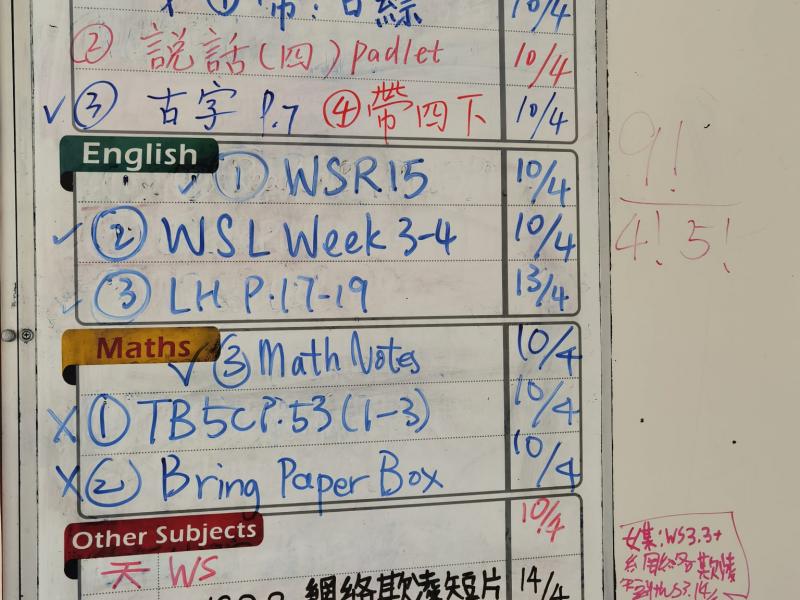 ① 帶: 10/4
② 說話(四) padlet 10/4
✓ ③ 古字 P.7 ④帶四下 10/4
English
✓ ① WSR15 10/4
✓ ② WSL Week 3-4 10/4
✓ ③ LH P.17-19 13/4
Maths
✓ ③ Math Notes 10/4
X ① TB5C P.53 (1-3) 10/4
X ② Bring Paper Box 10/4
Other Subjects
天 WS 10/4
網絡欺凌短片 14/4
9!
4! 5!
WS3.3+
網絡欺凌